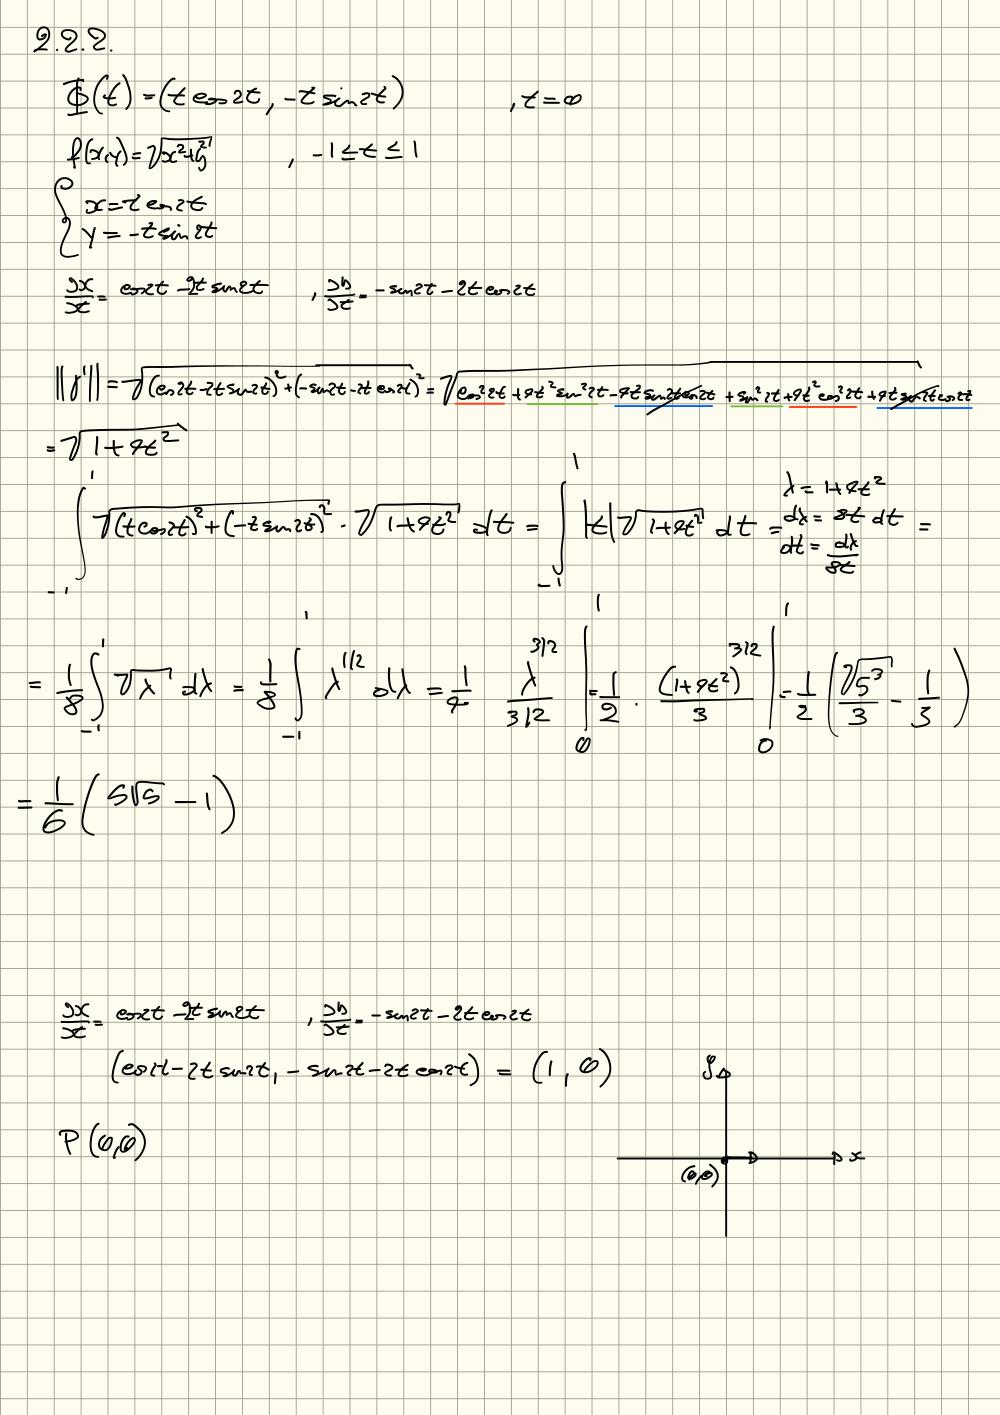 2.2.2.
Φ(t) = (t cos2t, -t sin2t) , t=0
f(x,y)=√(x²+y²) , -1≤t≤1
{ x=t cos2t
y = -t sin2t
∂x/∂t = cos2t -2t sin2t , ∂y/∂t = -sin2t -2t cos2t
||γ'|| = √((cos2t-2t sin2t)²+(-sin2t-2t cos2t)²) = √(cos²2t +4t² sin²2t -4t sin2t cos2t + sin²2t +4t² cos²2t +4t sin2t cos2t)
= √(1+4t²)
∫_{-1}^{1} √((t cos2t)²+(-t sin2t)²) · √(1+4t²) dt = ∫_{-1}^{1} |t| √(1+4t²) dt = λ = 1+4t² dλ = 8t dt dt = dλ/8t =
= 1/8 ∫_{-1}^{1} √λ dλ = 1/8 ∫_{-1}^{1} λ^{1/2} dλ = 1/4 λ^{3/2}/3/2 |_0^1 = 1/2 · (1+4t²)^{3/2}/3 |_0^1 = 1/2 (√5³/3 - 1/3)
= 1/6 (5√5 - 1)
∂x/∂t = cos2t -2t sin2t , ∂y/∂t = -sin2t -2t cos2t
(cos2t-2t sin2t, -sin2t-2t cos2t) = (1, 0)
y
P(0,0)
x
(0,0)